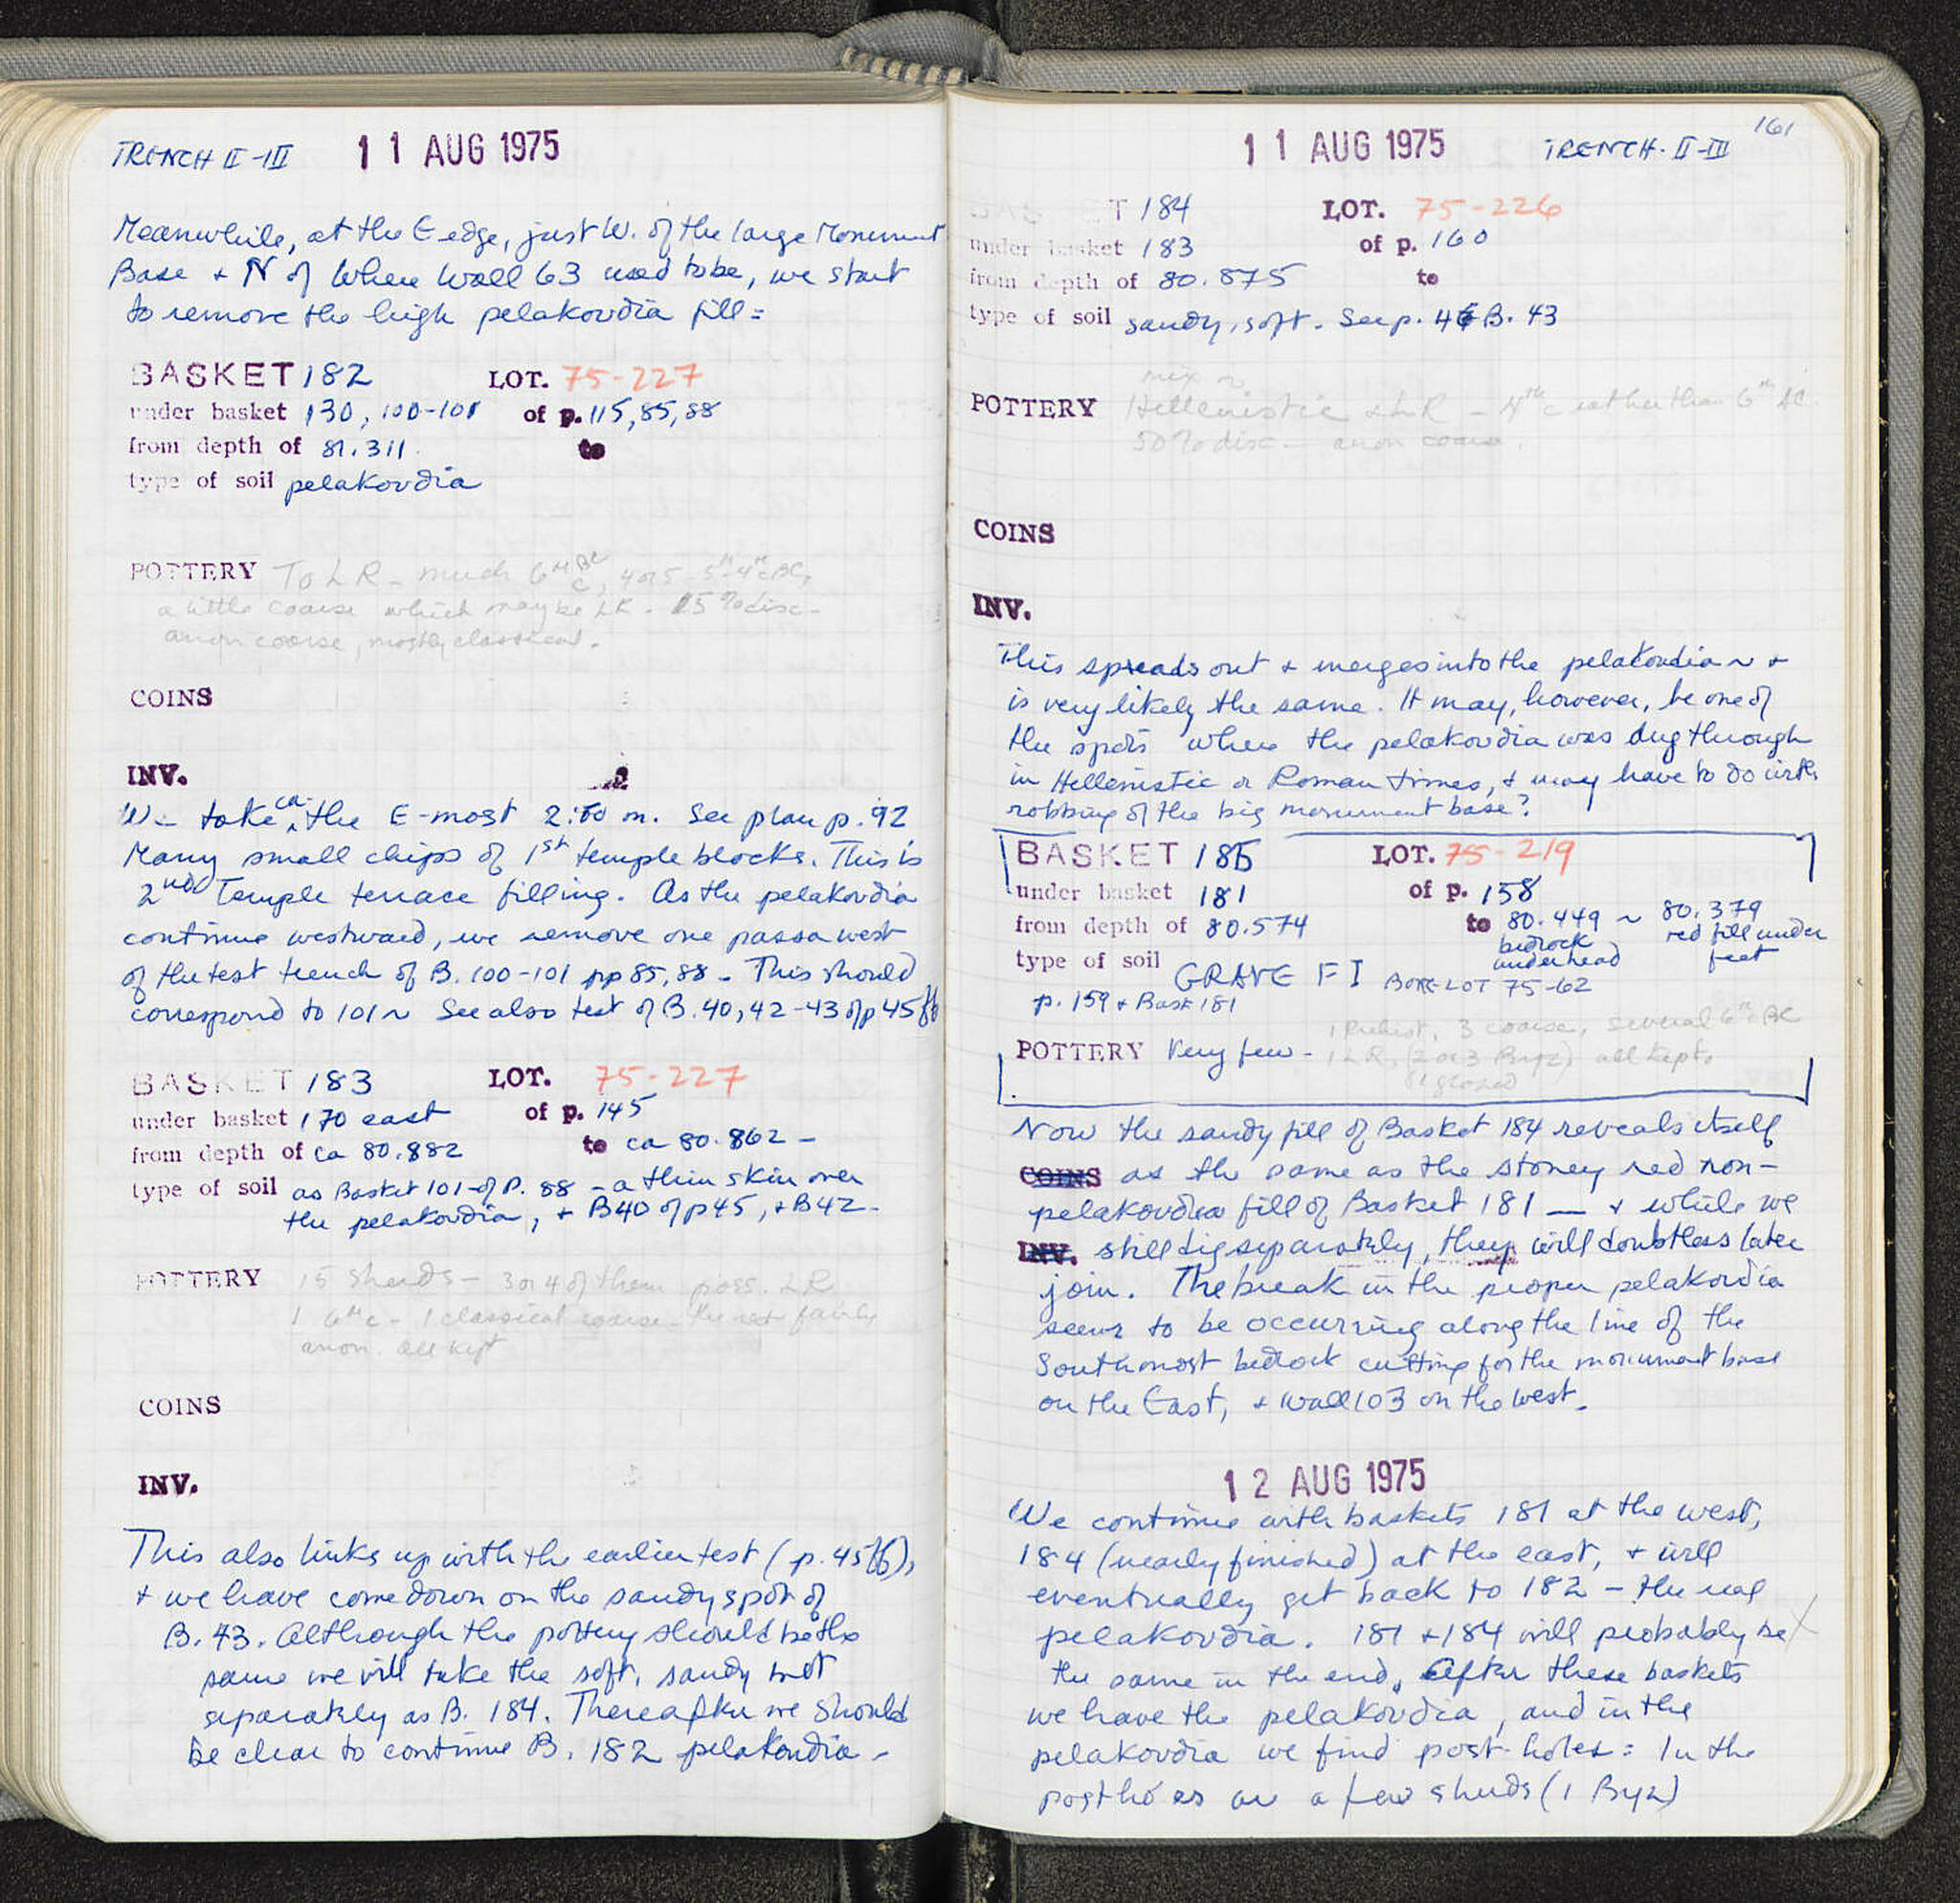 TRENCH II-III 11 AUG 1975
Meanwhile, at the E edge, just W. of the large Monument
Base + N of where Wall 63 used to be, we start
to remove the high pelakovdia fill =
BASKET 182 LOT. 75-227
under basket 130, 100-101 of p. 115, 85, 88
from depth of 81.311 to
type of soil pelakovdia
POTTERY To LR - much 6th c BC, 4 or 5 - 5th-4th c BC,
a little coarse which may be LR. 15% disc -
anon coarse, mostly classical.
COINS
INV.
We take ca. the E-most 2.50 m. See plan p. 92
Many small chips of 1st temple blocks. This is
2nd Temple terrace filling. As the pelakovdia
continue westward, we remove one pass a west
of the test trench of B. 100-101 pp 85, 88 - This should
correspond to 101 ~ See also test of B. 40, 42-43 of p 45 ff
BASKET 183 LOT. 75-227
under basket 170 east of p. 145
from depth of ca 80.882 to ca 80.862 -
type of soil as Basket 101 - of P. 88 - a thin skin over
the pelakovdia, + B40 of p45, + B42 -
POTTERY 15 sherds - 3 or 4 of them poss. LR
1 6th c - 1 classical coarse - the rest fairly
anon. all kept
COINS
INV.
This also links up with the earlier test (p. 45 ff),
+ we have come down on the sandy spot of
B. 43. Although the pottery should be the
same we will take the soft, sandy
separately as B. 184. Thereafter we should
be clear to continue B. 182 pelakovdia -
161
11 AUG 1975 TRENCH. II-III
BASKET 184 LOT. 75-226
under basket 183 of p. 160
from depth of 80.875 to
type of soil sandy, soft. See p. 46 B. 43
mix
POTTERY Hellenistic + LR - 4th c rather than 6th BC.
50% disc - anon coarse.
COINS
INV.
This spreads out + merges into the pelakovdia ~ +
is very likely the same. It may, however, be one of
the spots where the pelakovdia was dug through
in Hellenistic or Roman times, + may have to do with
robbing of the big monument base?
BASKET 185 LOT. 75-219
under basket 181 of p. 158
from depth of 80.574 to 80.449 ~ 80.379
bedrock underhead red fill under feet
type of soil GRAVE FI BONE LOT 75-62
p. 159 + Bask 181
POTTERY Very few - 1 Prehist, 3 coarse, several 6th c BC
1 LR, (2 or 3 Byz) all kept.
81 glazed
Now the sandy fill of Basket 184 reveals itself
COINS as the same as the stoney red non-
pelakovdia fill of Basket 181 — + while we
INV. still dig separately, they will doubtless later
join. The break in the proper pelakovdia
seems to be occurring along the line of the
Southmost bedrock cutting for the monument base
on the East, + Wall 103 on the west.
12 AUG 1975
We continue with baskets 181 at the west,
184 (nearly finished) at the east, + will
eventually get back to 182 - the real
pelakovdia. 181 + 184 will probably be
the same in the end. After these baskets
we have the pelakovdia, and in the
pelakovdia we find post-holes = In the
postholes are a few sherds (1 Byz)